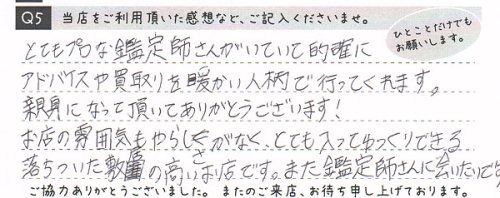 Q5 当店をご利用頂いた感想など、ご記入くださいませ。
ひとことだけでも
お願いします。
とてもプロな鑑定師さんがいていて的確に
アドバイスや買取りを暖かい人柄で行ってくれます。
親身になって頂いてありがとうございます!
お店の雰囲気もやらしさがなく、とても入ってゆっくりできる
落ちついた敷の高いお店です。また鑑定師さんに会いたいです
ご協力ありがとうございました。 またのご来店、お待ち申し上げております。